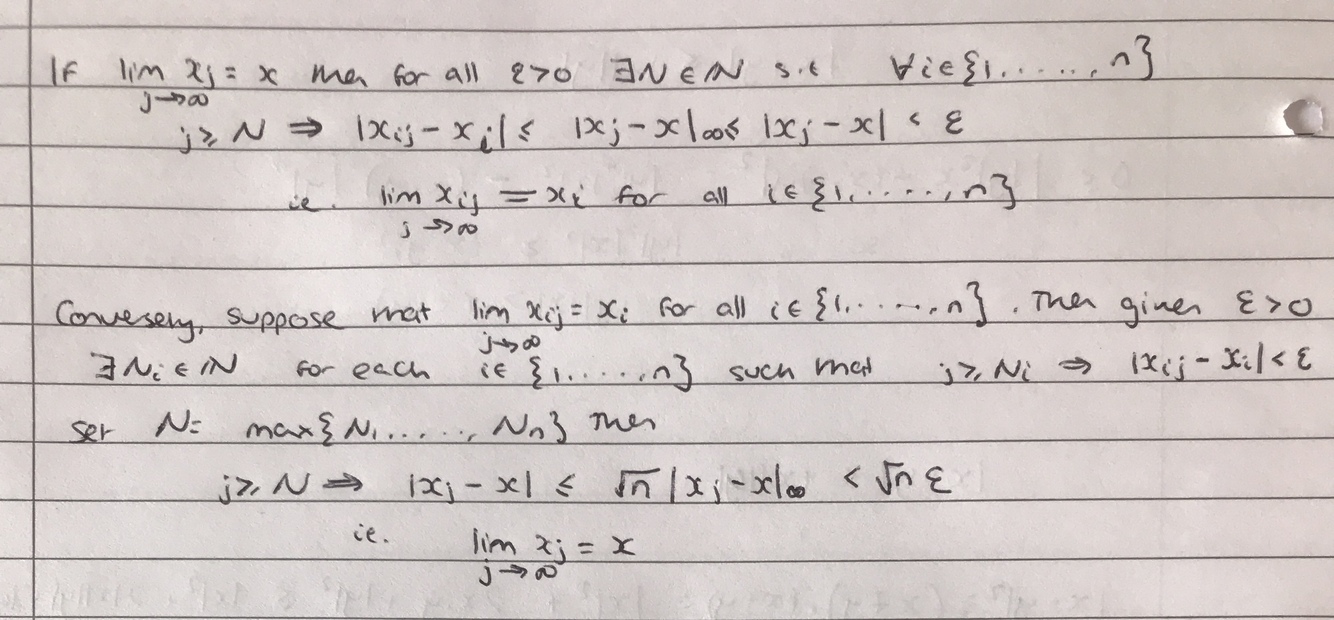 If lim x_j = x then for all ε>0 ∃N∈ℕ s.t ∀i∈{1,......,n}
j→∞
j≥N ⇒ |x_ij - x_i| ≤ |x_j - x|∞ ≤ |x_j - x| < ε
ie. lim x_ij = x_i for all i∈{1,.....,n}
j→∞
Conversely, suppose that lim x_ij = x_i for all i∈{1,......,n}. Then given ε>0
j→∞
∃N_i∈ℕ for each i∈{1,.....,n} such that j≥N_i ⇒ |x_ij - x_i|<ε
set N= max{N_1......,N_n} Then
j≥N ⇒ |x_j - x| ≤ √n |x_j - x|∞ < √n ε
ie. lim x_j = x
j→∞